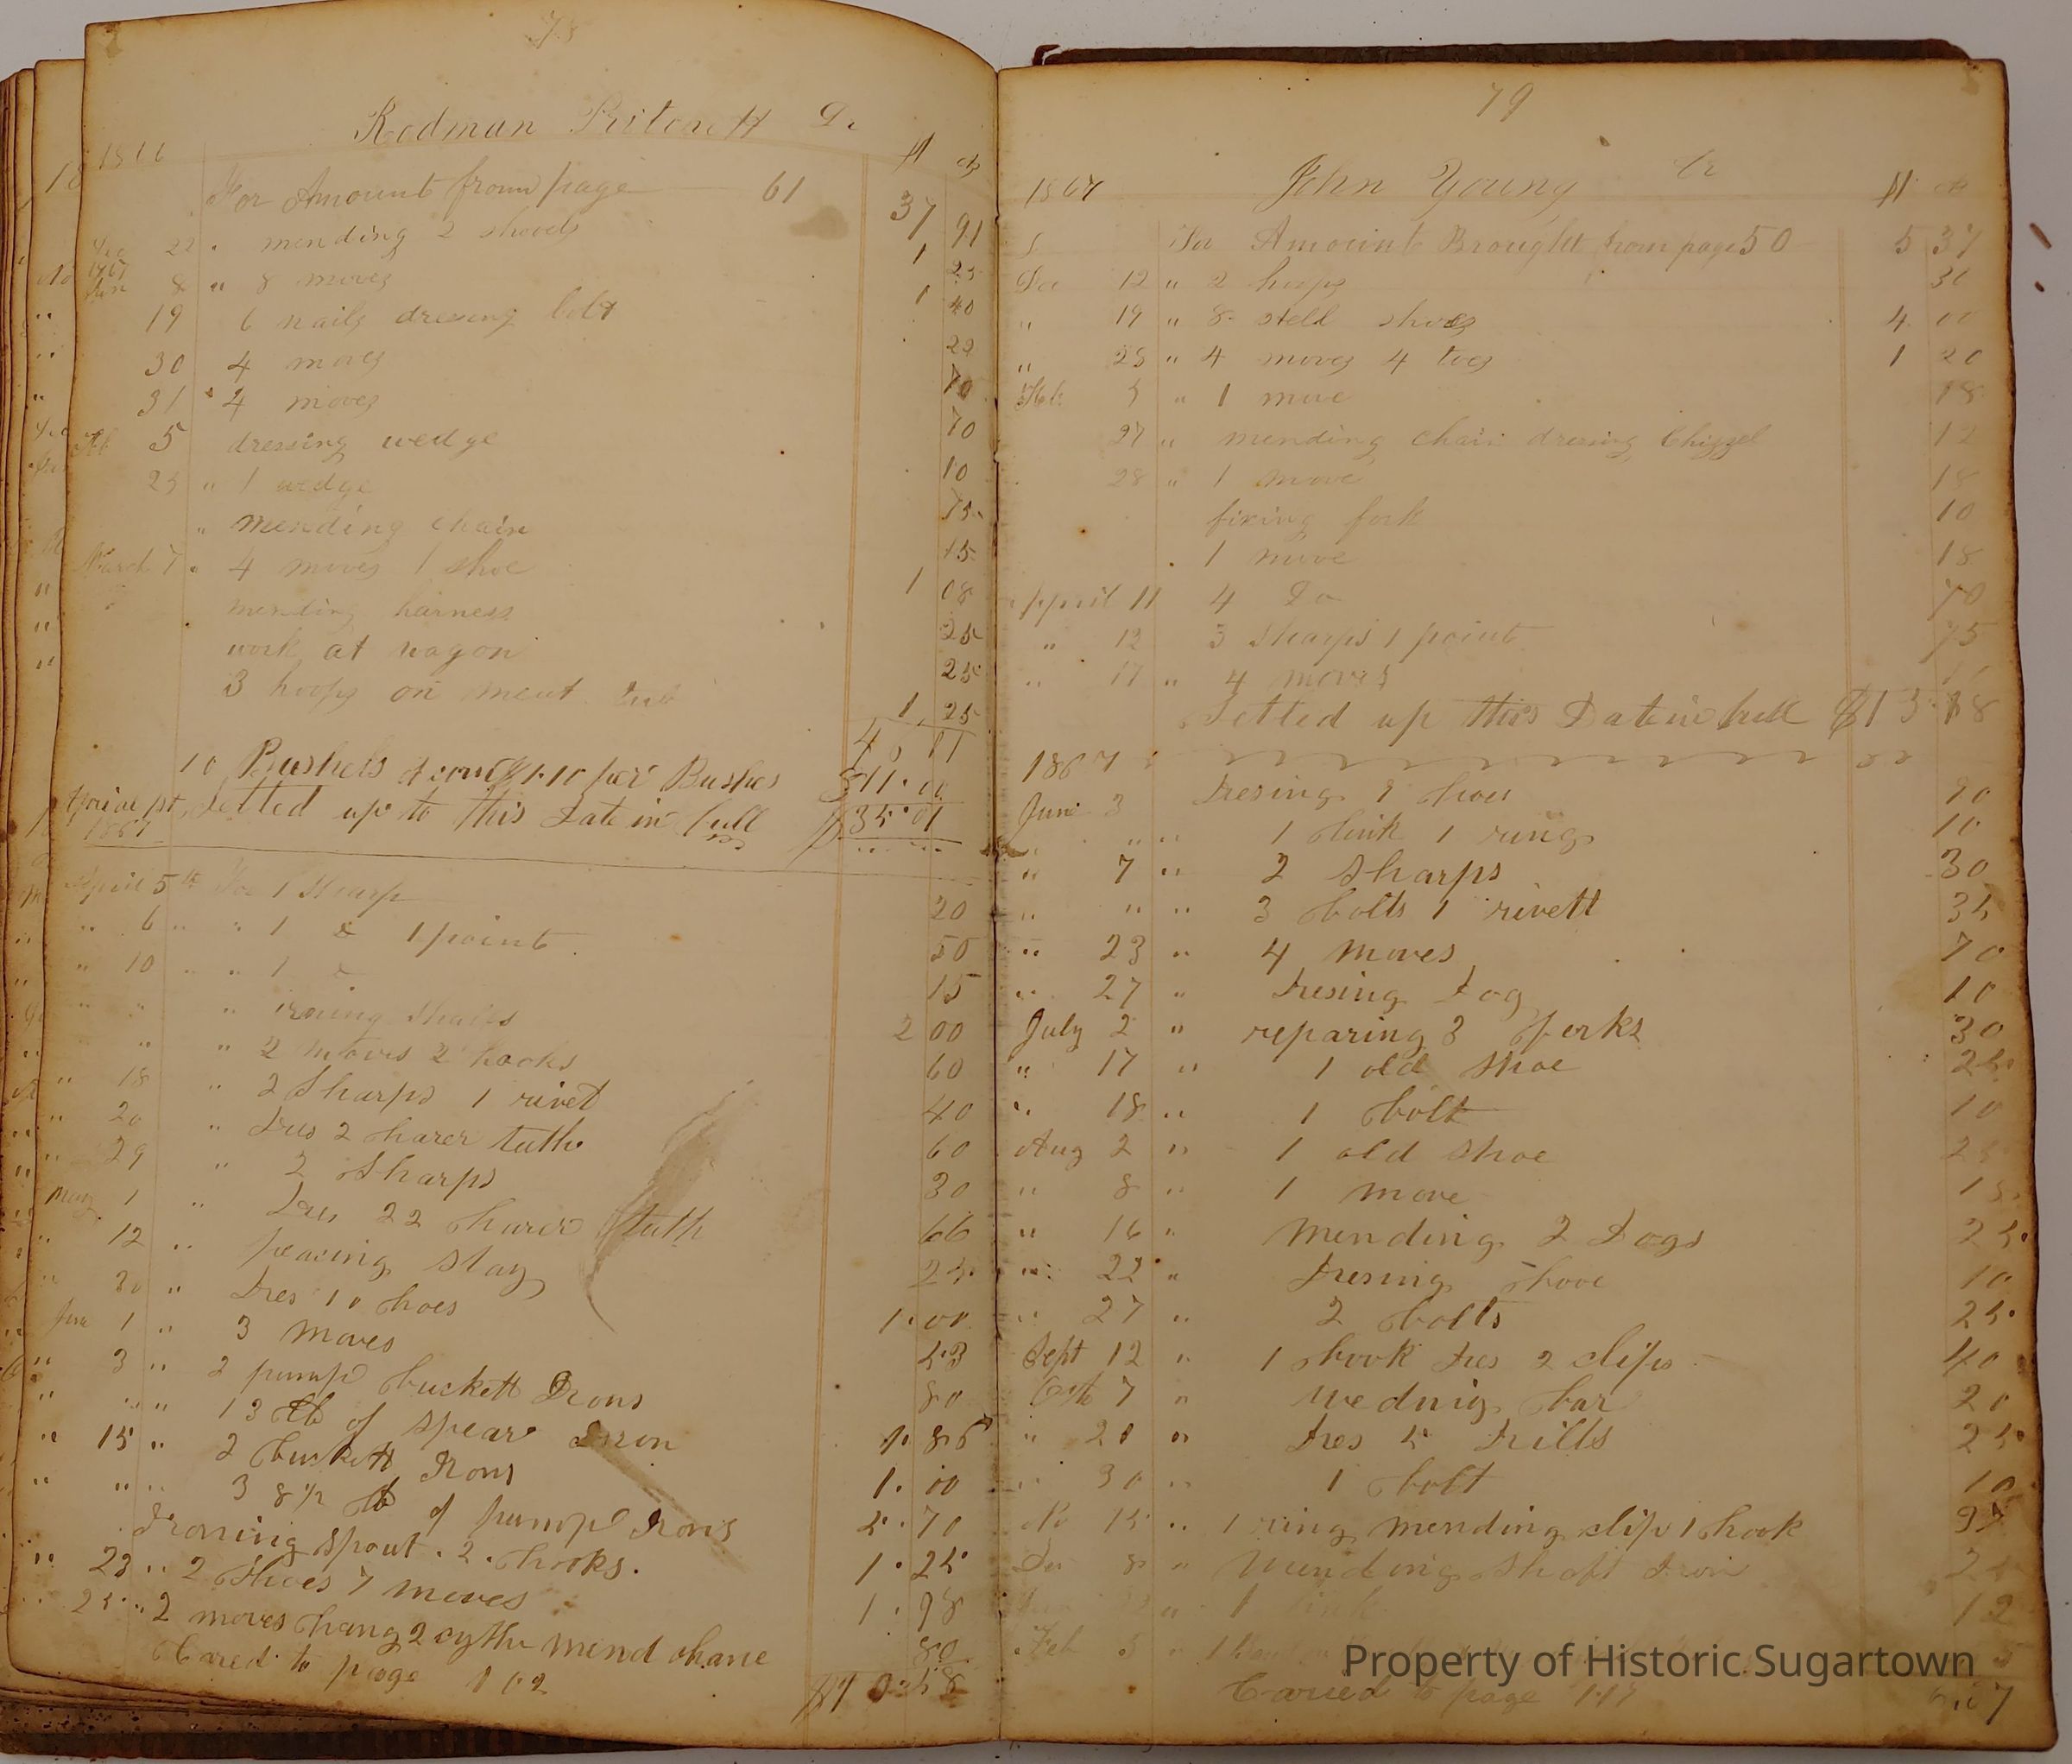 78
Redman Pritchett Dr
1866 $ cts
For Amount from page 61 37 91
Dec 22 " mending 2 shovels 1 25
1867
Jan 8 " 8 moves 1 40
19 6 nails dressing bolt 22
30 4 moves 70
31 " 4 moves 70
Feb 5 dressing wedge 10
25 " 1 wedge 75
" mending chain 15
March 7 " 4 moves 1 shoe 1 08
mending harness 25
work at wagon 25
3 hoops on meat tub 1 25
46 01
10 Bushels of corn 1.10 per Bushes $11.00
settled up to this Date in full $35.01
1867
April 5th For 1 Sharp 20
" 6 " " 1 & 1 point 50
" 10 " " 1 15
" " " ironing Shaves 2 00
" " 2 moves 2 hooks 60
" 18 " 2 Sharps 1 rivet 40
" 20 " Dres 2 harer tuth 60
" 29 " 2 Sharps 30
May 1 " Dres 22 harer tuth 66
" 12 " peacing stay 25
" 30 " Dres 10 hoes 1.00
June 1 " 3 moves 53
" 3 " 2 pump buckett Irons 80
" " " 13 lb of spear Iron 1.86
" 15 " 2 buckett Irons 1.00
" " " 38 1/2 lb of pump Irons 5.70
Ironing spout. 2. hooks. 1.25
" 23 " 2 Shoes 7 moves 1.98
" 25 " 2 moves hang 2 cythe mend chane 80
Cared to page 102
79
1867 John Young Cr $ cts
To Amount Brought from page 50 5 37
Do 12 " 2 hoops 30
" 19 " 8 stell shoes 4 00
" 25 " 4 moves 4 toes 1 20
Feb. 5 " 1 move 18
27 " mending chain dresing Chizzel 12
28 " 1 move 18
fixing fork 10
1 move 18
April 11 4 Do 70
" 13 3 Sharps 1 point 75
" 17 " 4 moves
Settled up this Date in full $13.
1867
June 3 Dresing hoes
" " " 1 link 1 ring 10
" 7 " 2 Sharps 30
" " " 3 bolts 1 rivett 35
" 23 " 4 moves 70
" 27 " Dresing Dog 10
July 2 " reparing 3 forks 30
" 17 " 1 old shoe 25
" 18 " 1 bolt 10
Aug 2 " 1 old shoe 25
" 8 " 1 move 18
" 16 " mending 2 Dogs 25
" 22 " Dresing hooe 10
" 27 " 2 bolts 25
Sept 12 " 1 hook Dres 2 clips 40
7 " bar 20
" 20 " Dres 5 Drills 25
" 30 " 1 bolt 10
No 15 " 1 ring mending clip 1 hook 95
De 8 " mending shaft Iron 25
22 " 1 link 12
Feb 5 "
Caried to page 117
Property of Historic Sugartown